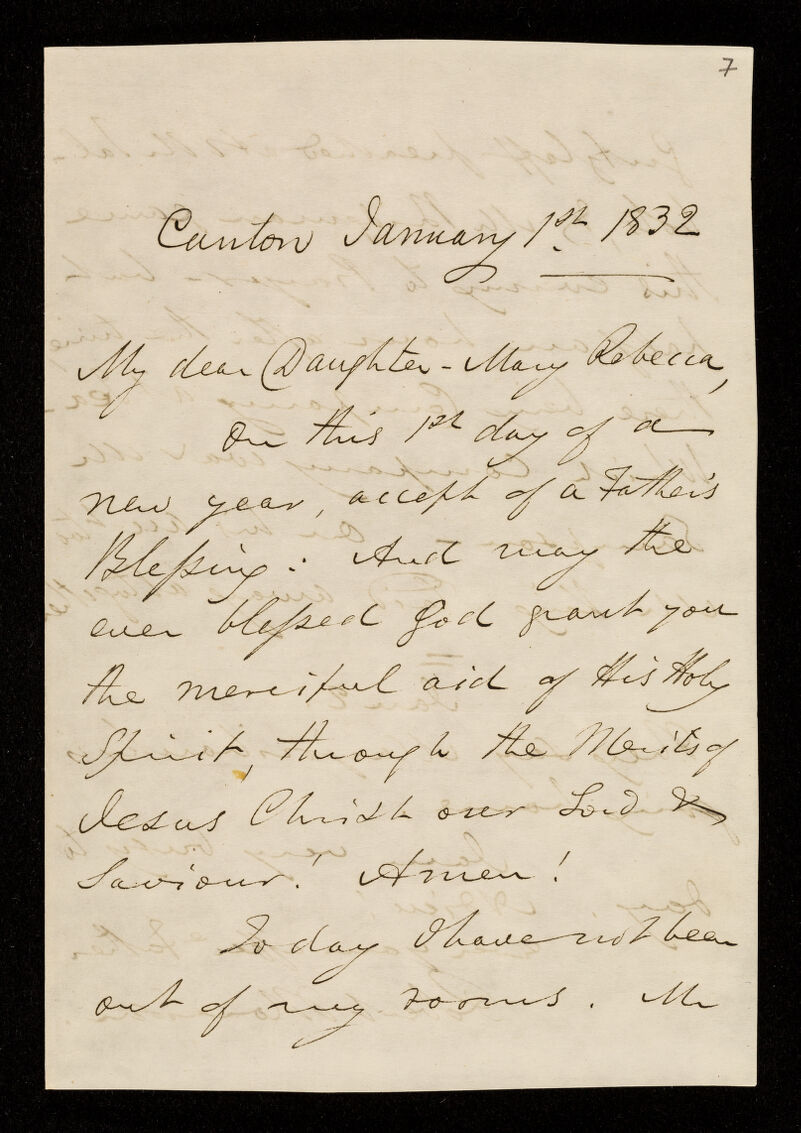 7
Canton January 1st. 1832
My dear Daughter - Mary Rebecca,
On this 1st day of a
new year, accept of a Father's
Blessing. And may the
ever blessed God grant you
the merciful aid of His Holy
Spirit, through the Merits of
Jesus Christ our Lord &
Saviour! Amen!
To day I have not been
out of my rooms. Mr